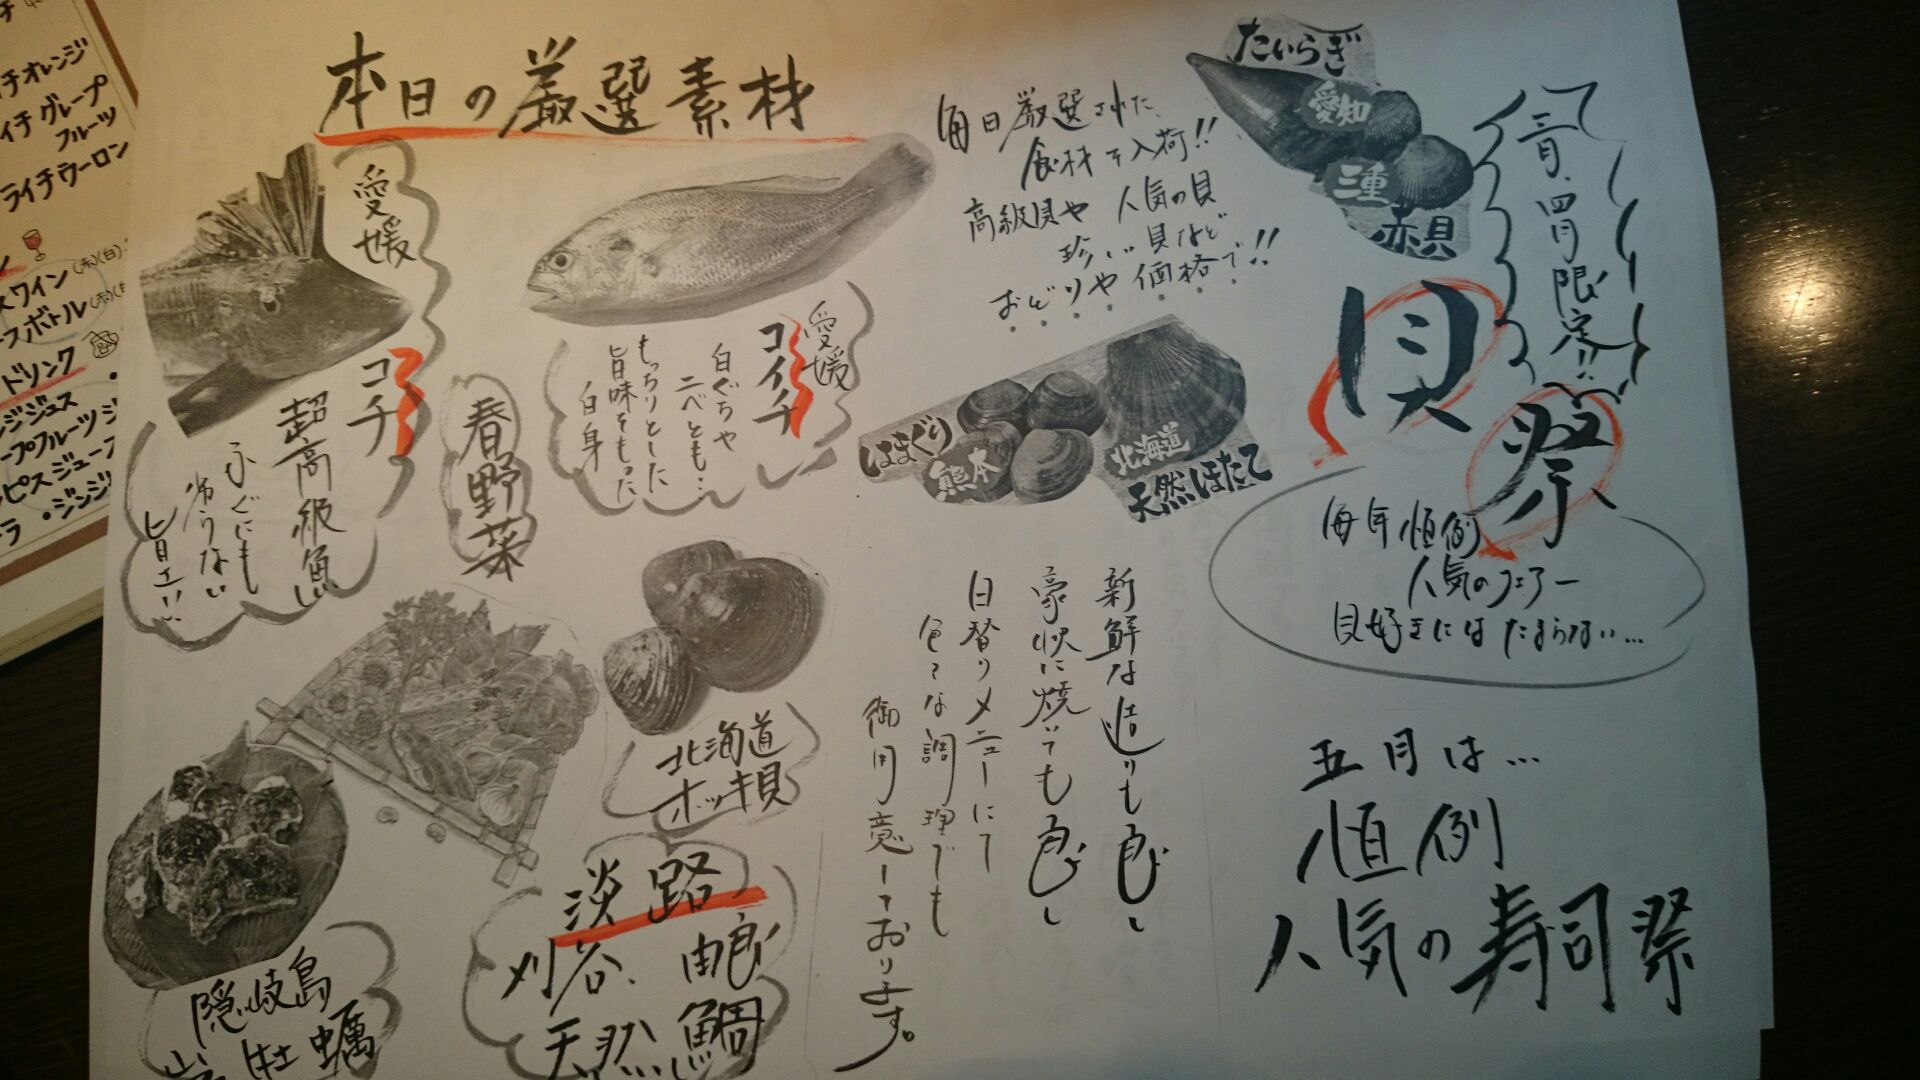 本日の厳選素材
愛媛
コチ
超高級魚
ふぐにも
劣らない
旨さ!!
愛媛
コイチ
白ぐちや
ニベとも…
もっちりとした
旨味をもった
白身
春野菜
北海道
ホッキ貝
隠岐島
岩牡蠣
淡路
刈谷、由良
天然鯛
三月、四月限定!!
貝祭
毎年恒例
人気のフェアー
貝好きにはたまらない…
たいらぎ
愛知
三重
赤貝
毎日厳選された
食材を入荷!!
高級貝や人気の貝
珍しい貝など
おどりや価格で!!
はまぐり
熊本
北海道
天然ほたて
新鮮な造りも良し
豪快に焼いても良し
日替りメニューにて
色々な調理でも
御用意しております。
五月は…
恒例
人気の寿司祭
チオレンジ
イチグループ
フルーツ
ライチウーロン
ワイン(赤)(白)
ボトル
ドリンク
ンジジュース
ープフルーツジ
ピスジュース
ラ・ジンジ